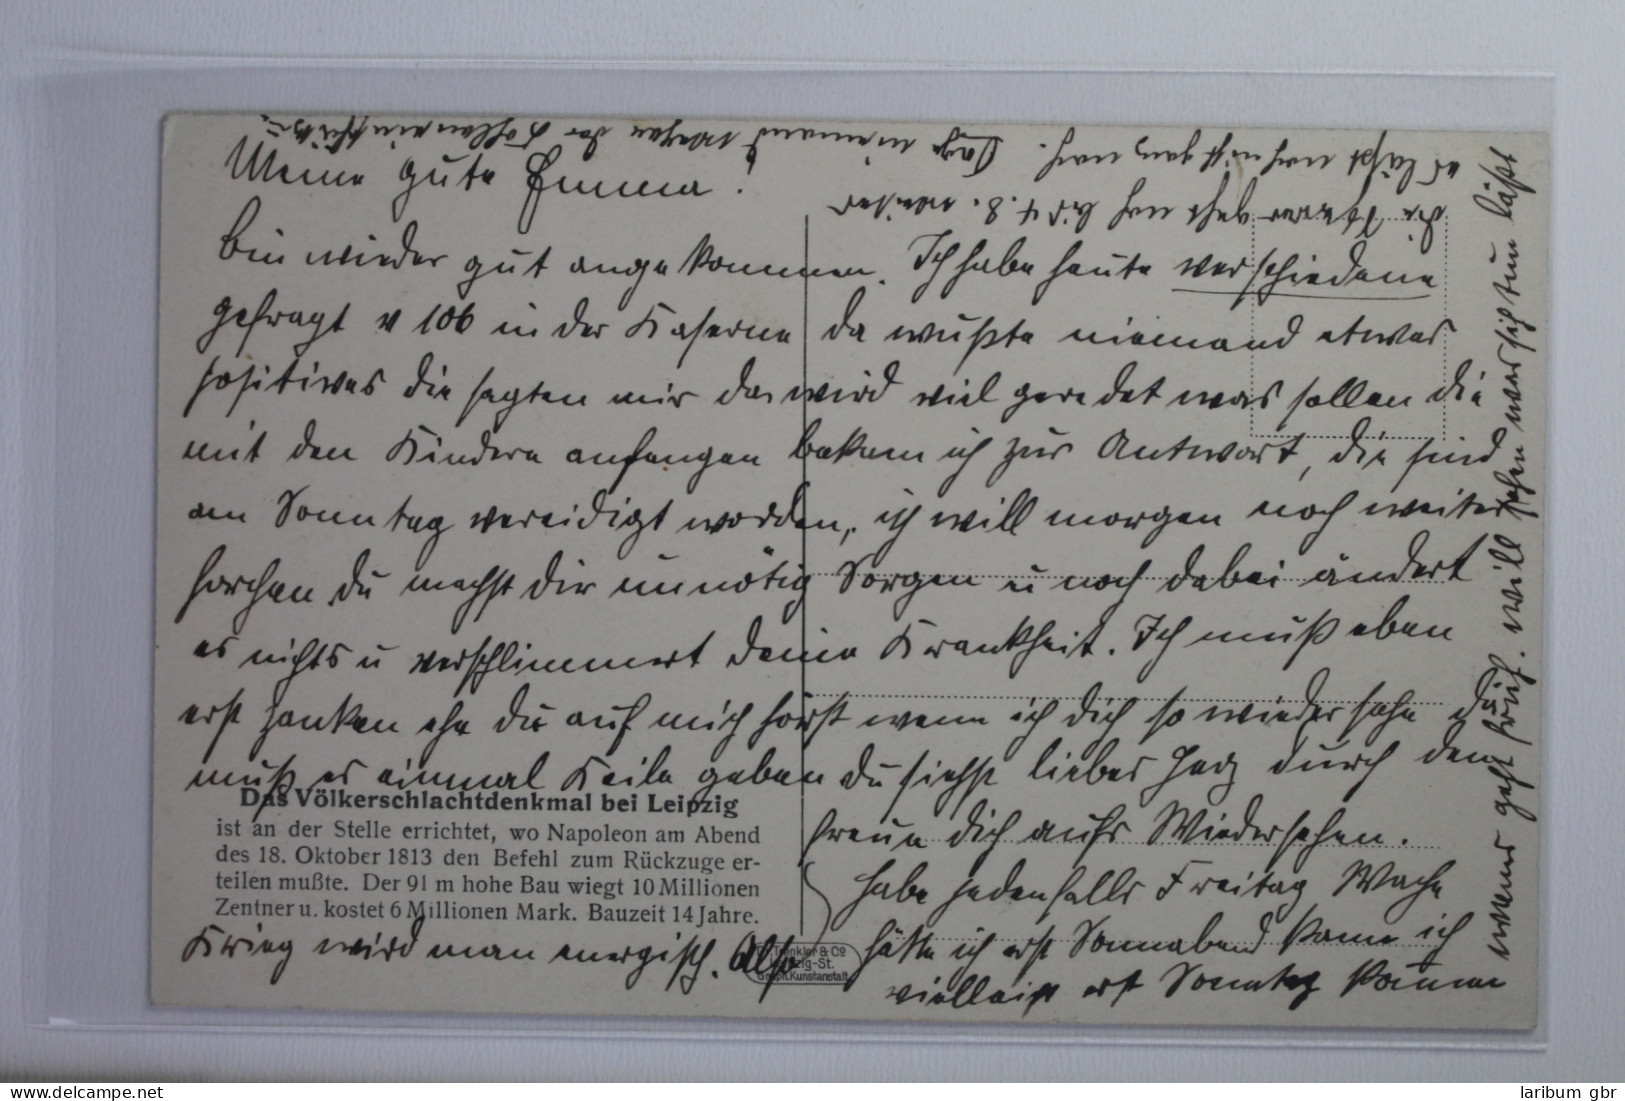 Meine gute Emma!
Bin wieder gut angekommen. Ich habe heute verschiedene
gefragt v 106 in der Kaserne da wußte niemand etwas
positives die sagten mir da wird viel geredet was sollen die
mit den Kindern anfangen bekam ich zur Antwort, die sind
am Sonntag vereidigt worden, ich will morgen noch weiter
horchen du machst dir unnötig Sorgen u noch dabei ändert
es nichts u verschlimmert deine Krankheit. Ich muß eben
erst zanken ehe du auf mich hörst wenn ich dich so wiedersehe du
mußt es einmal Keile geben du siehst liebes Herz durch den
Krieg wird man energisch. Also
freue dich aufs Wiedersehen.
Habe jedenfalls Freitag Wache
hätte ich erst Sonnabend käme ich
vielleicht erst Sonntag kommen
wenns geht früh. will sehen was sich tun läßt
die Steuer geht noch bis 1.8. weiter
es läßt noch nicht ganz nach. Sage niemand wegen der
Das Völkerschlachtdenkmal bei Leipzig
ist an der Stelle errichtet, wo Napoleon am Abend
des 18. Oktober 1813 den Befehl zum Rückzuge er-
teilen mußte. Der 91 m hohe Bau wiegt 10 Millionen
Zentner u. kostet 6 Millionen Mark. Bauzeit 14 Jahre.
Dr. Trenkler & Co
Leipzig-St.
Graph. Kunstanstalt
laribum gbr